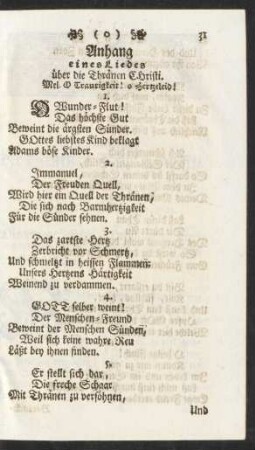 ( o ) 31
Anhang
eines Liedes
über die Thränen CHristi.
Mel. O Traurigkeit! o Hertzeleid!
1.
O Wunder-Flut!
Das höchste Gut
Beweint die ärgsten Sünder.
GOttes liebstes Kind beklagt
Adams böse Kinder.
2.
Immanuel,
Der Freuden Quell,
Wird hier ein Quell der Thränen,
Die sich nach Barmhertzigkeit
Für die Sünder sehnen.
3.
Das zartste Hertz
Zerbricht vor Schmertz,
Und schmeltzt in heissen Flammen:
Unsers Hertzens Härtigkeit
Weinend zu verdammen.
4.
GOTT selber weint!
Der Menschen-Freund
Beweint der Menschen Sünden,
Weil sich keine wahre Reu
Läßt bey ihnen finden.
5.
Er stellt sich dar,
Die freche Schaar
Mit Thränen zu versöhnen,
Und